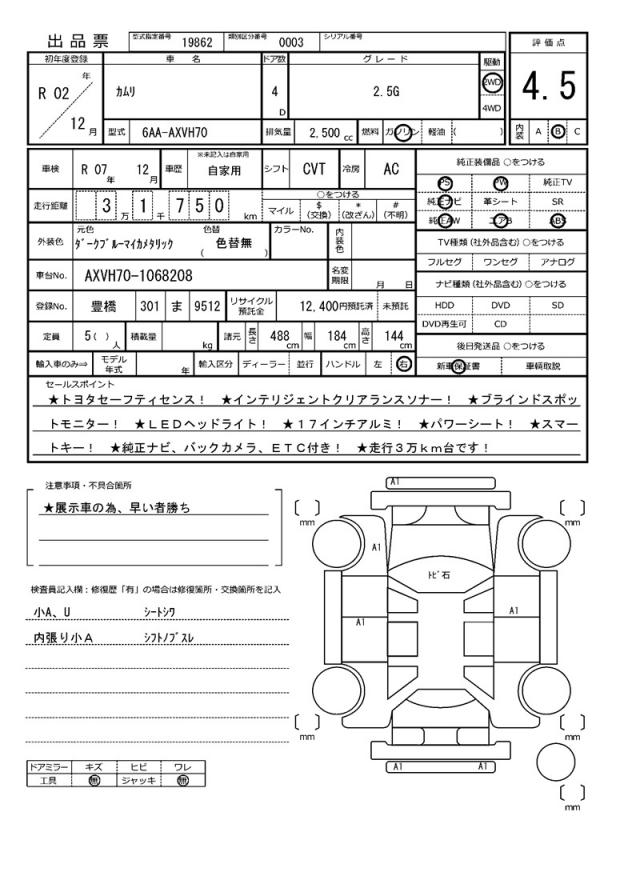 出品票 型式指定番号 19862 類別区分番号 0003 シリアル番号
初年度登録 車名 ドア数 グレード 駆動 評価点
R 02 年 12 月 カムリ 4 D 2.5G 2WD 4WD 4.5
型式 6AA-AXVH70 排気量 2,500 cc 燃料 ガソリン 軽油 ( ) 内装 A B C
車検 R 07 年 12 月 車歴 ※未記入は自家用 自家用 シフト CVT 冷房 AC
純正装備品 ○をつける
PS PW 純正TV
純正ナビ 革シート SR
純正AW エアB ABS
走行距離 3 万 1 千 7 5 0 km ○をつける マイル $ (交換) * (改ざん) # (不明)
外装色 元色 ダークブルーマイカメタリック 色替 ( 色替無 ) カラーNo. 内装色
TV種類 (社外品含む) ○をつける
フルセグ ワンセグ アナログ
車台No. AXVH70-1068208 名変期限 月 日
ナビ種類 (社外品含む) ○をつける
HDD DVD SD
DVD再生可 CD
登録No. 豊橋 301 ま 9512 リサイクル預託金 12,400円預託済 未預託
定員 5( ) 人 積載量 kg 諸元 長さ 488 cm 幅 184 cm 高さ 144 cm
後日発送品 ○をつける
新車保証書 車輌取説
輸入車のみ⇒ モデル年式 年 輸入区分 ディーラー 並行 ハンドル 左 右
セールスポイント
★トヨタセーフティセンス! ★インテリジェントクリアランスソナー! ★ブラインドスポッ
トモニター! ★LEDヘッドライト! ★17インチアルミ! ★パワーシート! ★スマー
トキー! ★純正ナビ、バックカメラ、ETC付き! ★走行3万km台です!
注意事項・不具合箇所
★展示車の為、早い者勝ち
検査員記入欄:修復歴「有」の場合は修復箇所・交換箇所を記入
小A、U シートシワ
内張り小A シフトノブスレ
ドアミラー キズ ヒビ ワレ
工具 無 ジャッキ 無
A1
[ ] mm [ ] mm
A1
トビ石
A1 A1
[ ] mm [ ] mm
A1 A1
[ ] mm